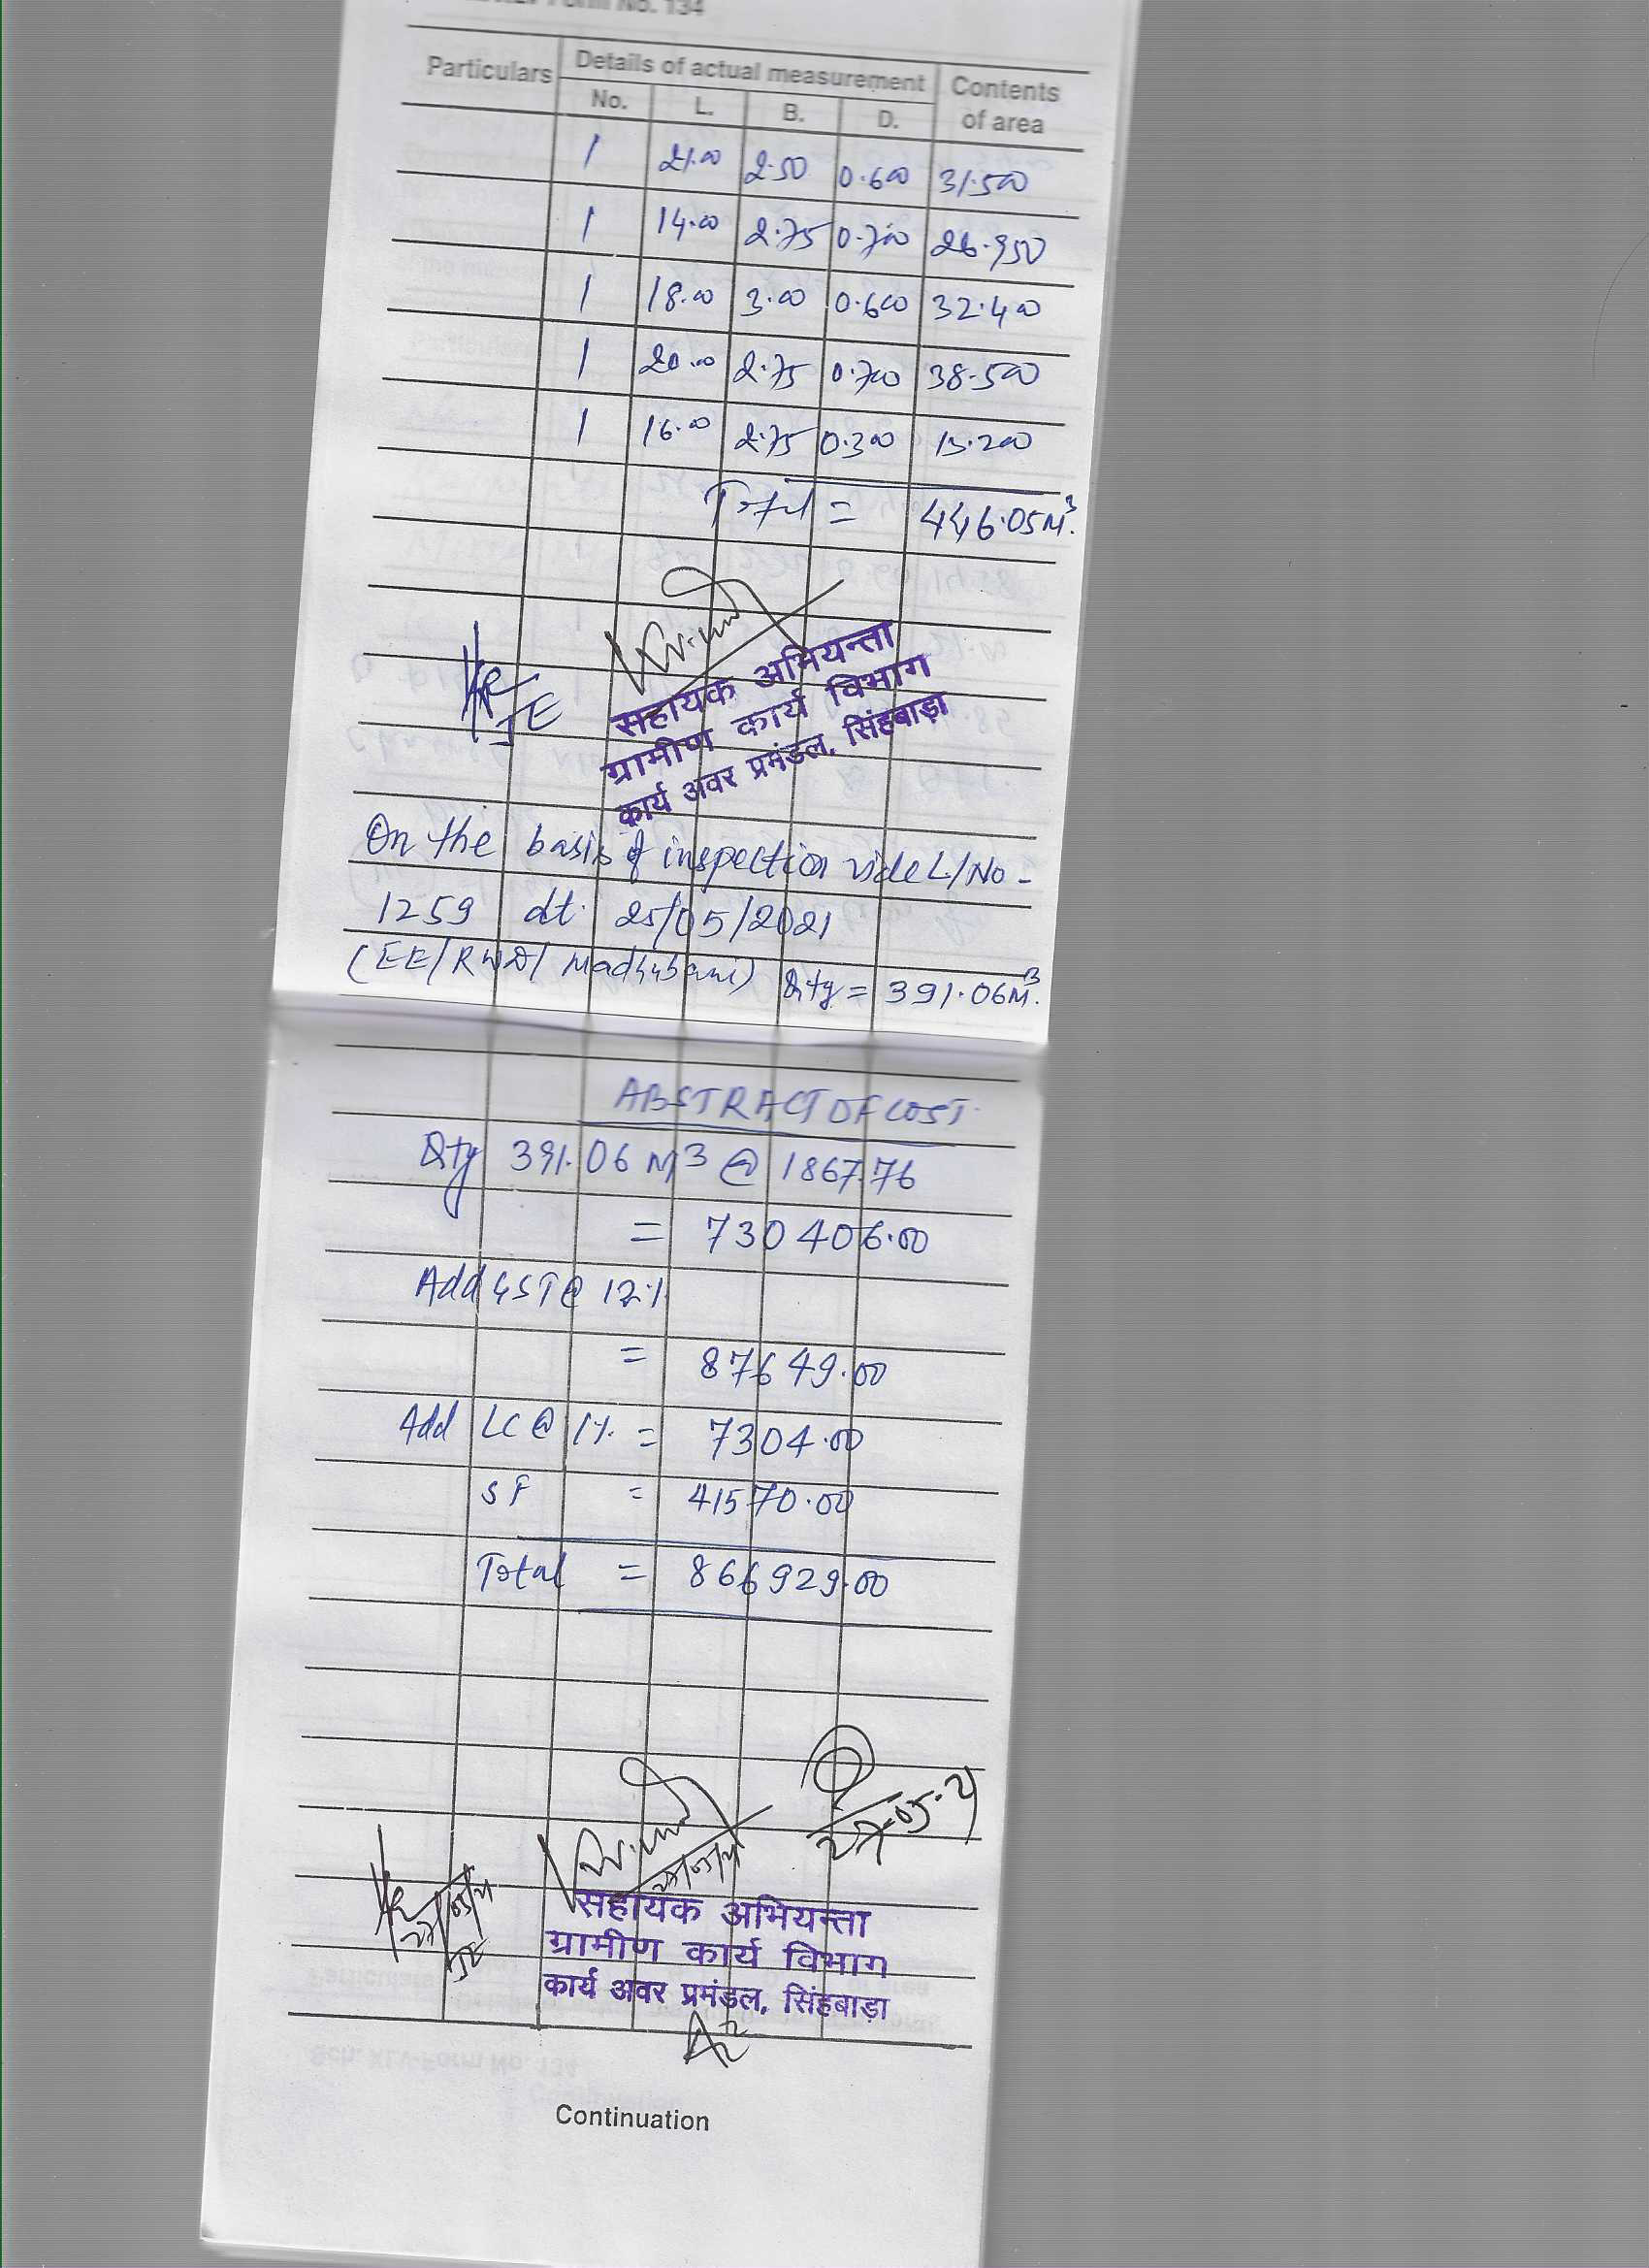 Form No. 134
Particulars Details of actual measurement Contents of area
No. L. B. D.
1 21.00 2.50 0.600 31.500
1 14.00 2.75 0.700 26.950
1 18.00 3.00 0.600 32.400
1 20.00 2.75 0.700 38.500
1 16.00 2.75 0.300 13.200
Total = 446.05 M³.
JE
सहायक अभियन्ता
ग्रामीण कार्य विभाग
कार्य अवर प्रमंडल, सिंहवाड़ा
On the basis of inspection vide L/No -
1259 dt. 25/05/2021
(EE/RWD/Madhubani) Qty = 391.06 M³.
ABSTRACT OF COST.
Qty 391.06 M3 @ 1867.76
= 730406.00
Add GST @ 12%
= 87649.00
Add LC @ 1% = 7304.00
SF = 41570.00
Total = 866929.00
27-05-21
JE
सहायक अभियन्ता
ग्रामीण कार्य विभाग
कार्य अवर प्रमंडल, सिंहवाड़ा
Continuation